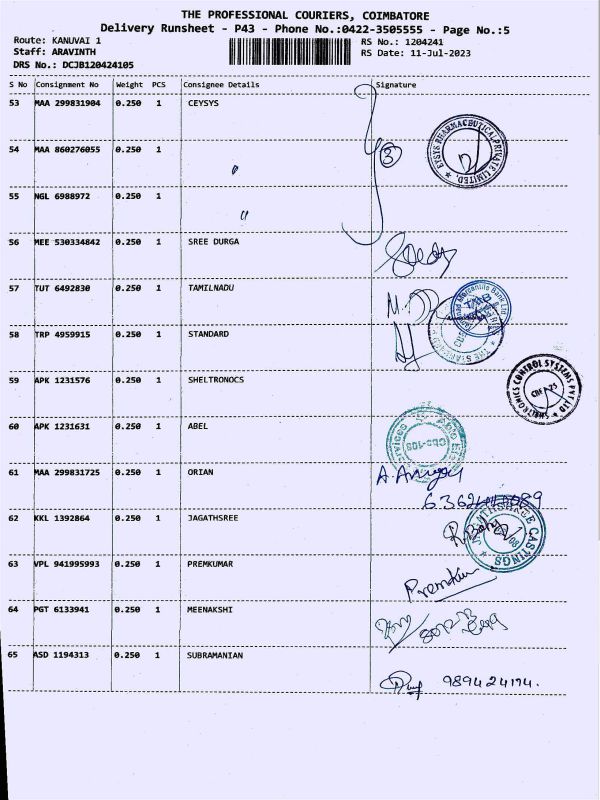 THE PROFESSIONAL COURIERS, COIMBATORE
Delivery Runsheet - P43 - Phone No.:0422-3505555 - Page No.:5
Route: KANUVAI 1 RS No.: 1204241
Staff: ARAVINTH RS Date: 11-Jul-2023
DRS No.: DCJB120424105
S No Consignment No Weight PCS Consignee Details Signature
53 MAA 299831904 0.250 1 CEYSYS
54 MAA 860276055 0.250 1 " 3 EYSYS PHARMACEUTICAL PRIVATE LIMITED. *
55 NGL 6988972 0.250 1 "
56 MEE 530334842 0.250 1 SREE DURGA
57 TUT 6492830 0.250 1 TAMILNADU
58 TRP 4959915 0.250 1 STANDARD
59 APK 1231576 0.250 1 SHELTRONOCS SHELTRONICS CONTROL SYSTEMS PVT LTD * CBE - 25
60 APK 1231631 0.250 1 ABEL
61 MAA 299831725 0.250 1 ORIAN
62 KKL 1392864 0.250 1 JAGATHSREE CASTINGS *
63 VPL 941995993 0.250 1 PREMKUMAR Premkumar
64 PGT 6133941 0.250 1 MEENAKSHI
65 ASD 1194313 0.250 1 SUBRAMANIAN